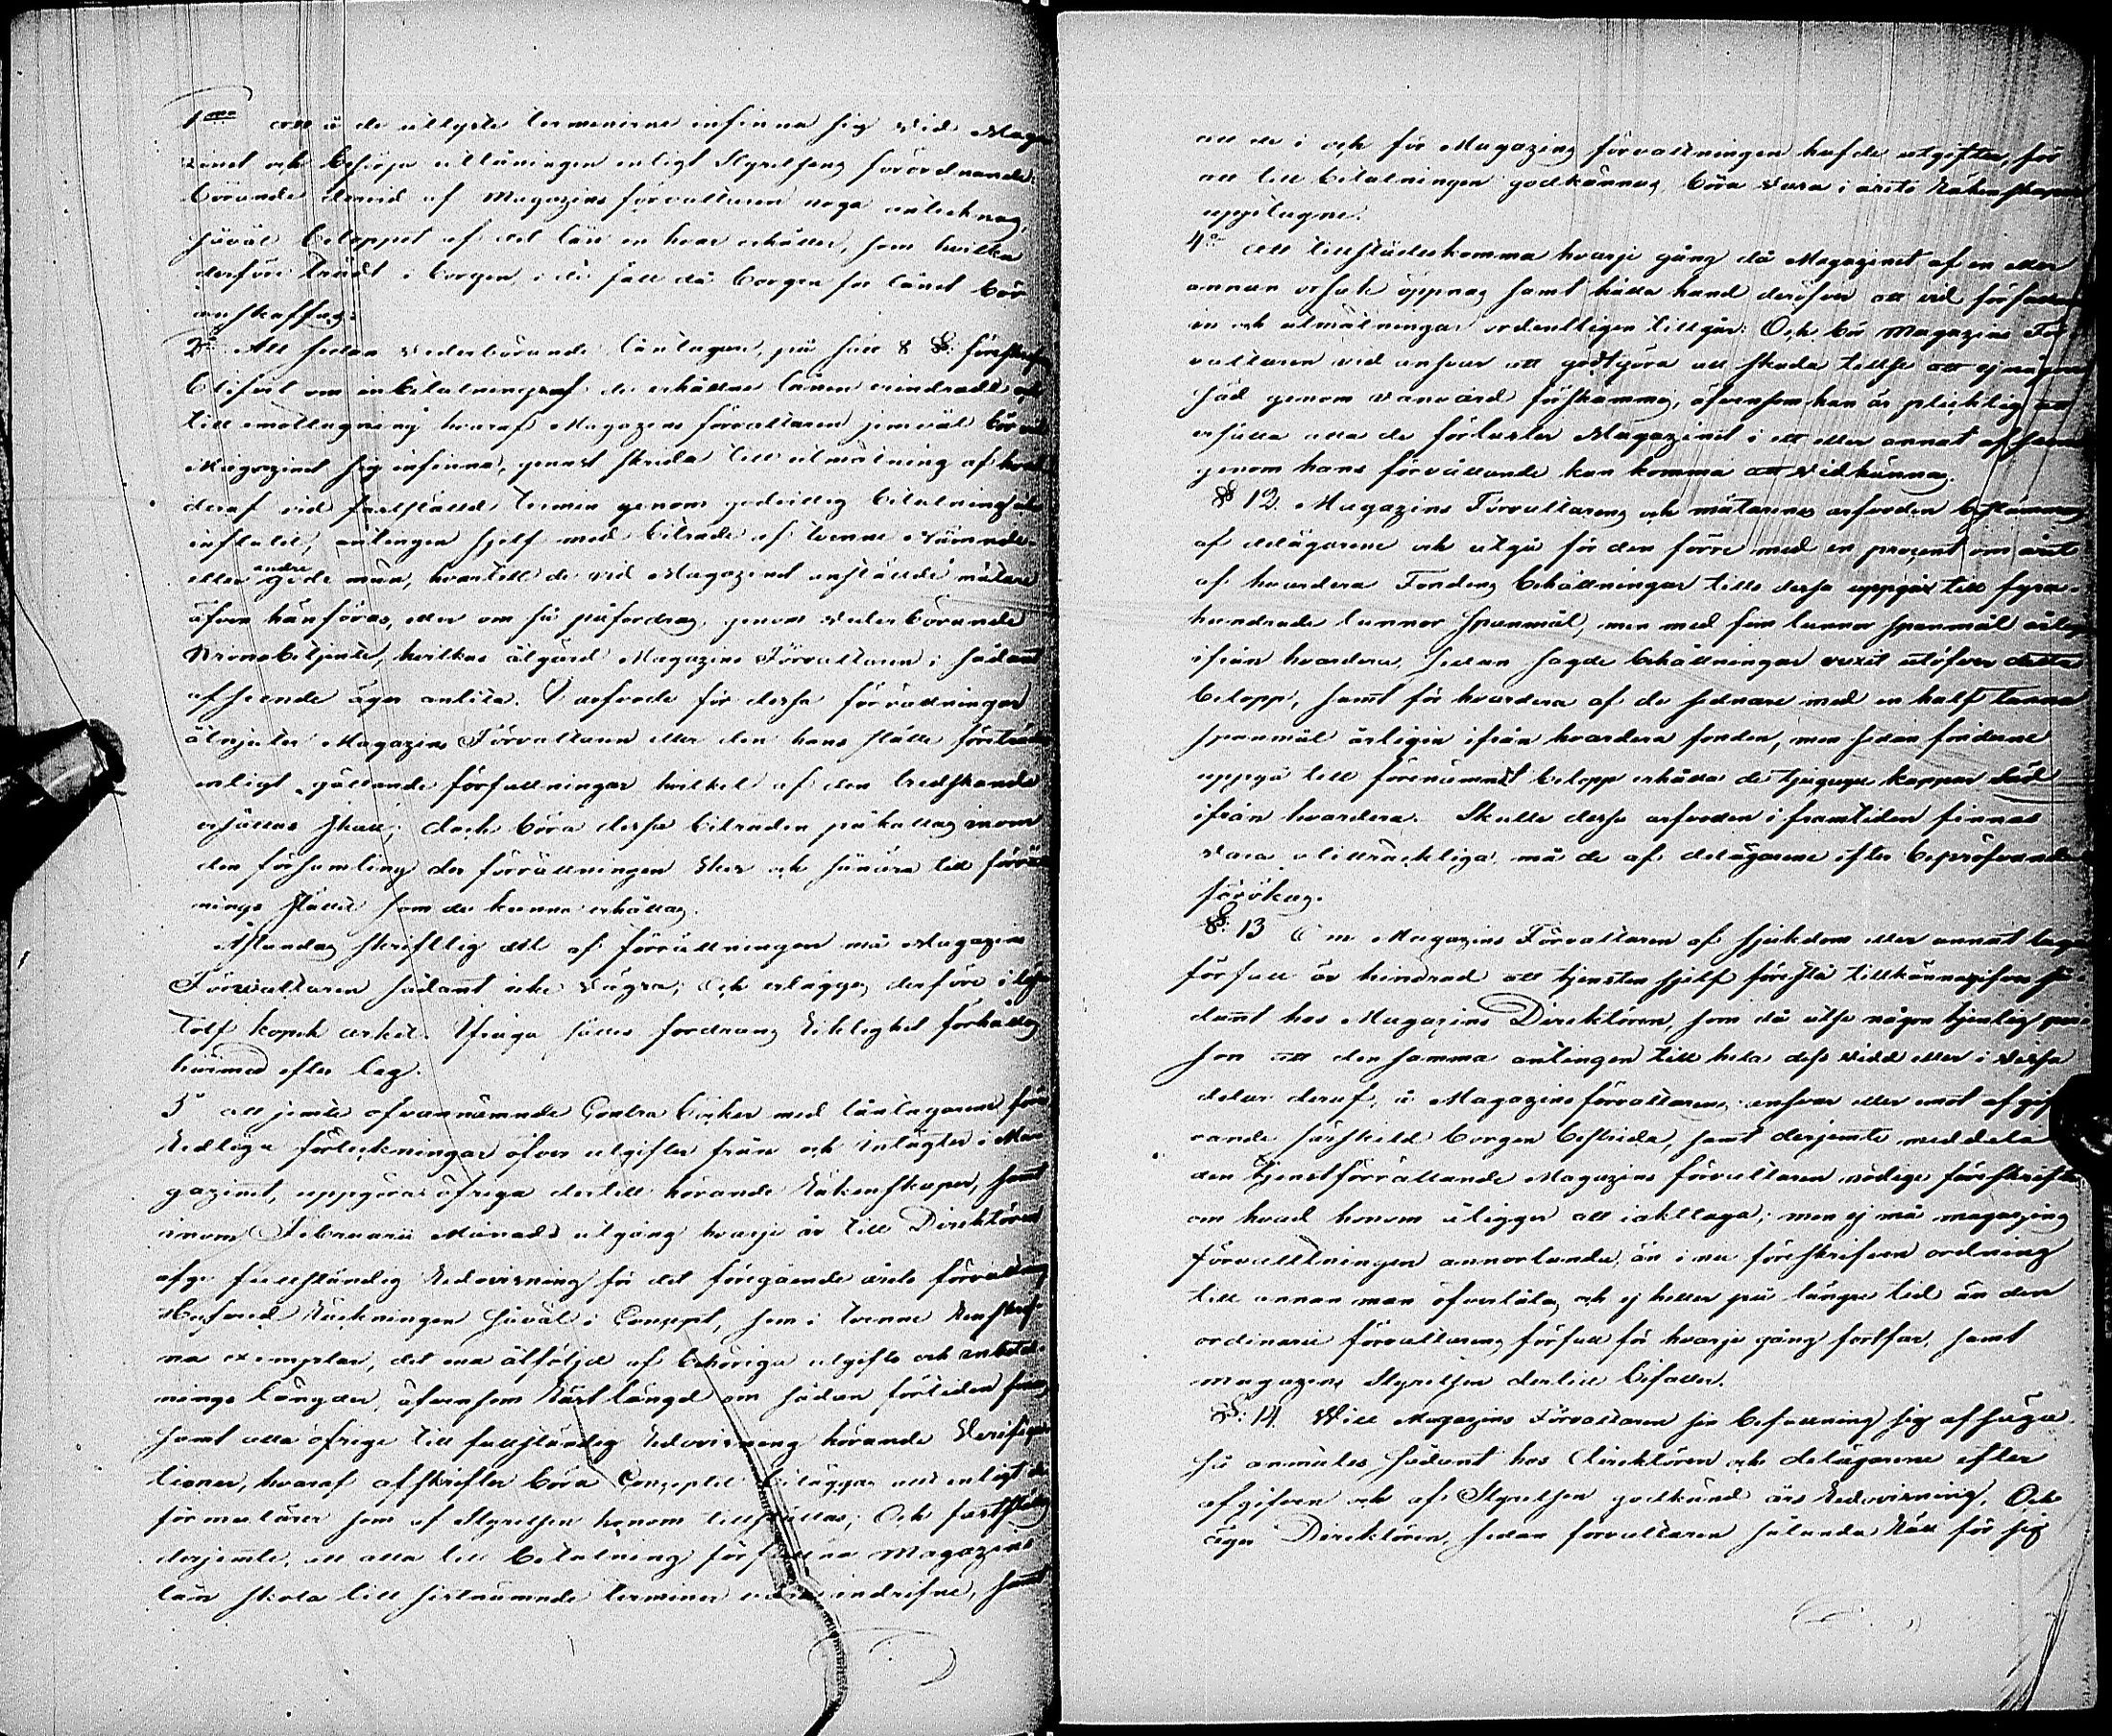 1mo att å de utlyste terminerne infinna sig vid Maga
zinet och besörja utlåningen enligt Styrelsens förordnande:
börande dervid af Magazins förvaltaren noga antecknas,
såväl beloppet af det lån en hvar erhåller, som hvilka
derföre trädt i borgen, i de fall då borgen för lånet bör
anskaffas.
2o Att sedan vederbörande låntagare, på sätt 8 §. föreskrifver
blifvit om inbetalning af de erhållne lånen erindrade och
till emottagning hvaraf Magazins förvaltaren jemväl bör vid
Magazinet sig infinna, genast skrida till utmätning af hvad
deraf vid fastställd termin genom godvillig betalning icke
influtit, antingen sjelf med biträde af tvenne Nämnde-
eller andre gode män, hvartill de vid Magazinet anställde mätare
äfven hänföras, eller om så påfordras, genom vederbörande
Kronobetjente, hvilkas åtgärd Magazins Förvaltaren i sådant
afseende äger anlita. I arfvode för dessa förrättningar
åtnjuter Magazins Förvaltaren eller den hans ställe företräder
enligt gällande författningar hvilket af den tredskande
ersättas skall; dock böra dessa biträden påkallas inom
den församling der förrättningen sker och så nära till förrätt
nings stället som de kunna erhållas.
Åstundas skriftlig del af förrättningen må Magazins
Förvaltaren sådant icke vägra; och erlägges derföre i lösen
tolf kopek arket. Ifråga sättes fordrans riktighet förhålles
härmed efter lag.
3o att jemte ofvannämnde Contra böcker med låntagarene föra
redliga förteckningar öfver utgifter från och intägter i Ma
gazinet, uppgöra öfriga dertill hörande Räkenskaper, samt
inom Februarii Månads utgång hvarje år till Direktören
afge fullständig redovisning för det föregående årets förvaltning
Hafvande Räkningen såväl i Concept, som i tvenne renskrif
na exemplar, det ena åtföljdt af behöriga utgifts och inbetal
nings längder, äfvensom Restlängd om sådan förtiden finnes
samt alla öfrige till fullständig redovisning hörande Verifica
tioner, hvaraf afskrifter böra Conceptet biläggas allt enligt de
formulärer som af Styrelsen honom tillställas; Och fastställes
derjemte, att alla till betalning förfallna Magazins
lån skola till sistnämnde terminer vara indrifne, samt
att de i och för Magazins förvaltningen hafde utgifter, för
att till betalningen godkännas, böra vara i årets Räkenskaper
upptagne.
4o att tillstädeskomma hvarje gång då Magazinet af en eller
annan orsak öppnas samt hålla hand deröfver att vid
in och utmätningar ordentligen tillgår: Och bör Magazins För
valtaren vid ansvar att godtgöra all skada tillse att ej någon
säd genom vanvård förskämmes, äfvensom han är plicktig att
ersätta alla de förluster Magazinet i ett eller annat afseende
genom hans förvållande kan komma att vidkännas.
§ 12. Magazins Förvaltarens och mätarenes arfvoden bestämmas
af delägarene och utgå för den förre med en procent om året
af hvardera Fondens behållningar tills dessa uppgår till fyra-
hundrade tunnor spannmål, men med fem tunnor spannmål årligen
ifrån hvardera, sedan sagde behållningar vuxit utöfver detta
belopp, samt för hvardera af de sednare med en half tunna
spannmål årligen ifrån hvardera fonden, men sedan fonderne
uppgå till förenämnt belopp erhålla de tjugugu kappar säd
ifrån hvardera. Skulle dessa arfvoden i framtiden finnas
vara otillräckliga, må de af delägarene efter bepröfvande
förökas.
§. 13 Om Magazins Förvaltaren af sjukdom eller annat laga
förfall är hindrad att tjensten sjelf förestå tillkännagifves så
dant hos Magazins Direktören, som då utse någon tjenlig per
son att den samma antingen till hela dess vidd eller i vissa
delar deraf, å Magazins förvaltarens ansvar eller emot af gif
vande särskild borgen bestrida, samt derjemte meddela
den tjenstförrättande Magazins förvaltaren nödige föreskrifter
om hvad honom åligger att iakttaga; men ej må magazins
förvaltningen annorlunda, än i nu föreskrifven ordning
till annan man öfverlåtas och ej heller på längre tid än den
ordinarie förvaltarens förfall för hvarje gång fortfar, samt
magazins Styrelsen dertill bifaller.
§. 14. Vill Magazins Förvaltaren sin befattning sig afsäga
så anmäles sådant hos Direktören och delägarene efter
afgifven och af Styrelsen godkänd års redovisning. Och
äger Direktören, sedan förvaltaren sålunda käll för sig